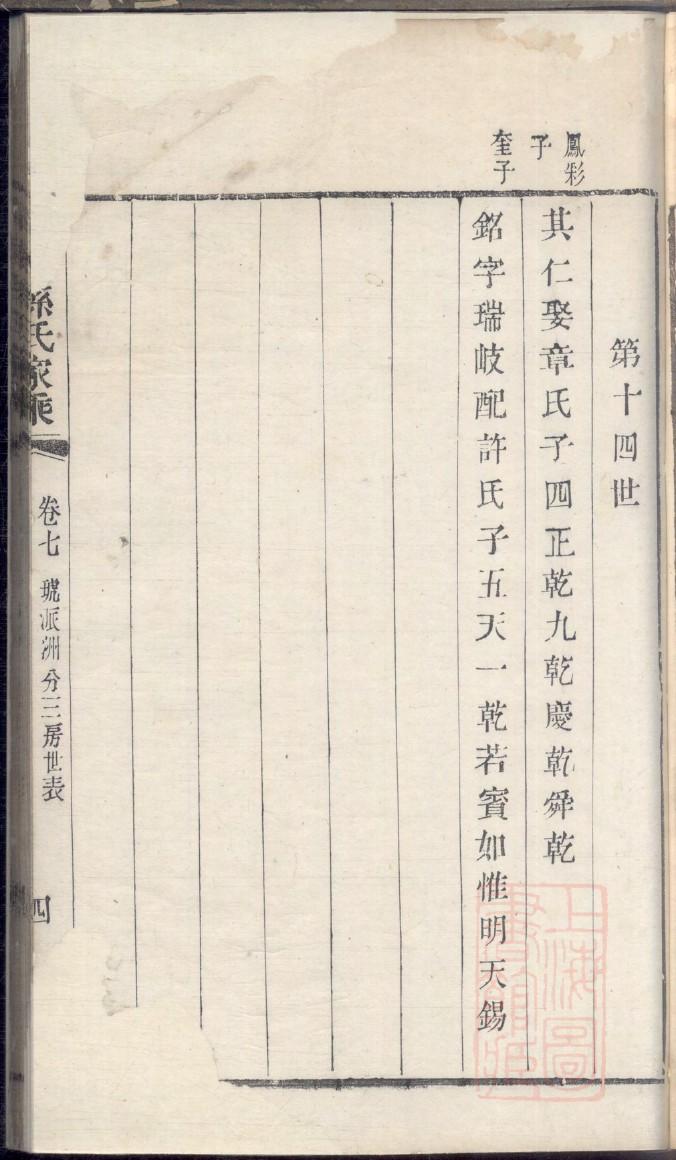 第十四世
鳳彩
子
其仁娶章氏子四正乾九乾慶乾舜乾
奎子
銘字瑞岐配許氏子五天一乾若賓如惟明天錫
孫氏家乘
卷七
琥派洲分三房世表
四
上海圖
書館藏